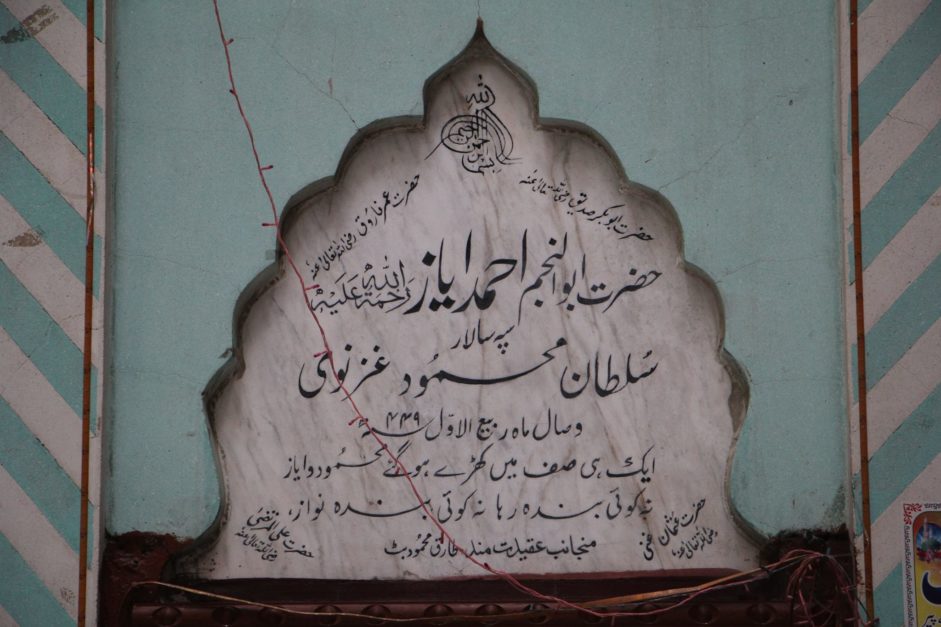 بسم اللہ الرحمن الرحیم
حضرت ابوبکر صدیق رضی اللہ تعالیٰ عنہ
حضرت عمر فاروق رضی اللہ تعالیٰ عنہ
حضرت ابوالنجم احمد ایاز رحمۃ اللہ علیہ
سپہ سالار
سُلطان محمُود غزنوی
وصال ماہ ربیع الاوّل ۴۴۹ھ
ایک ہی صف میں کھڑے ہو گئے محمُود و ایاز
نہ کوئی بندہ رہا نہ کوئی بندہ نواز،
حضرت عثمان غنی رضی اللہ تعالیٰ عنہ
حضرت علی المرتضیٰ رضی اللہ تعالیٰ عنہ
منجانب عقیدت مند طارق محمود بٹ